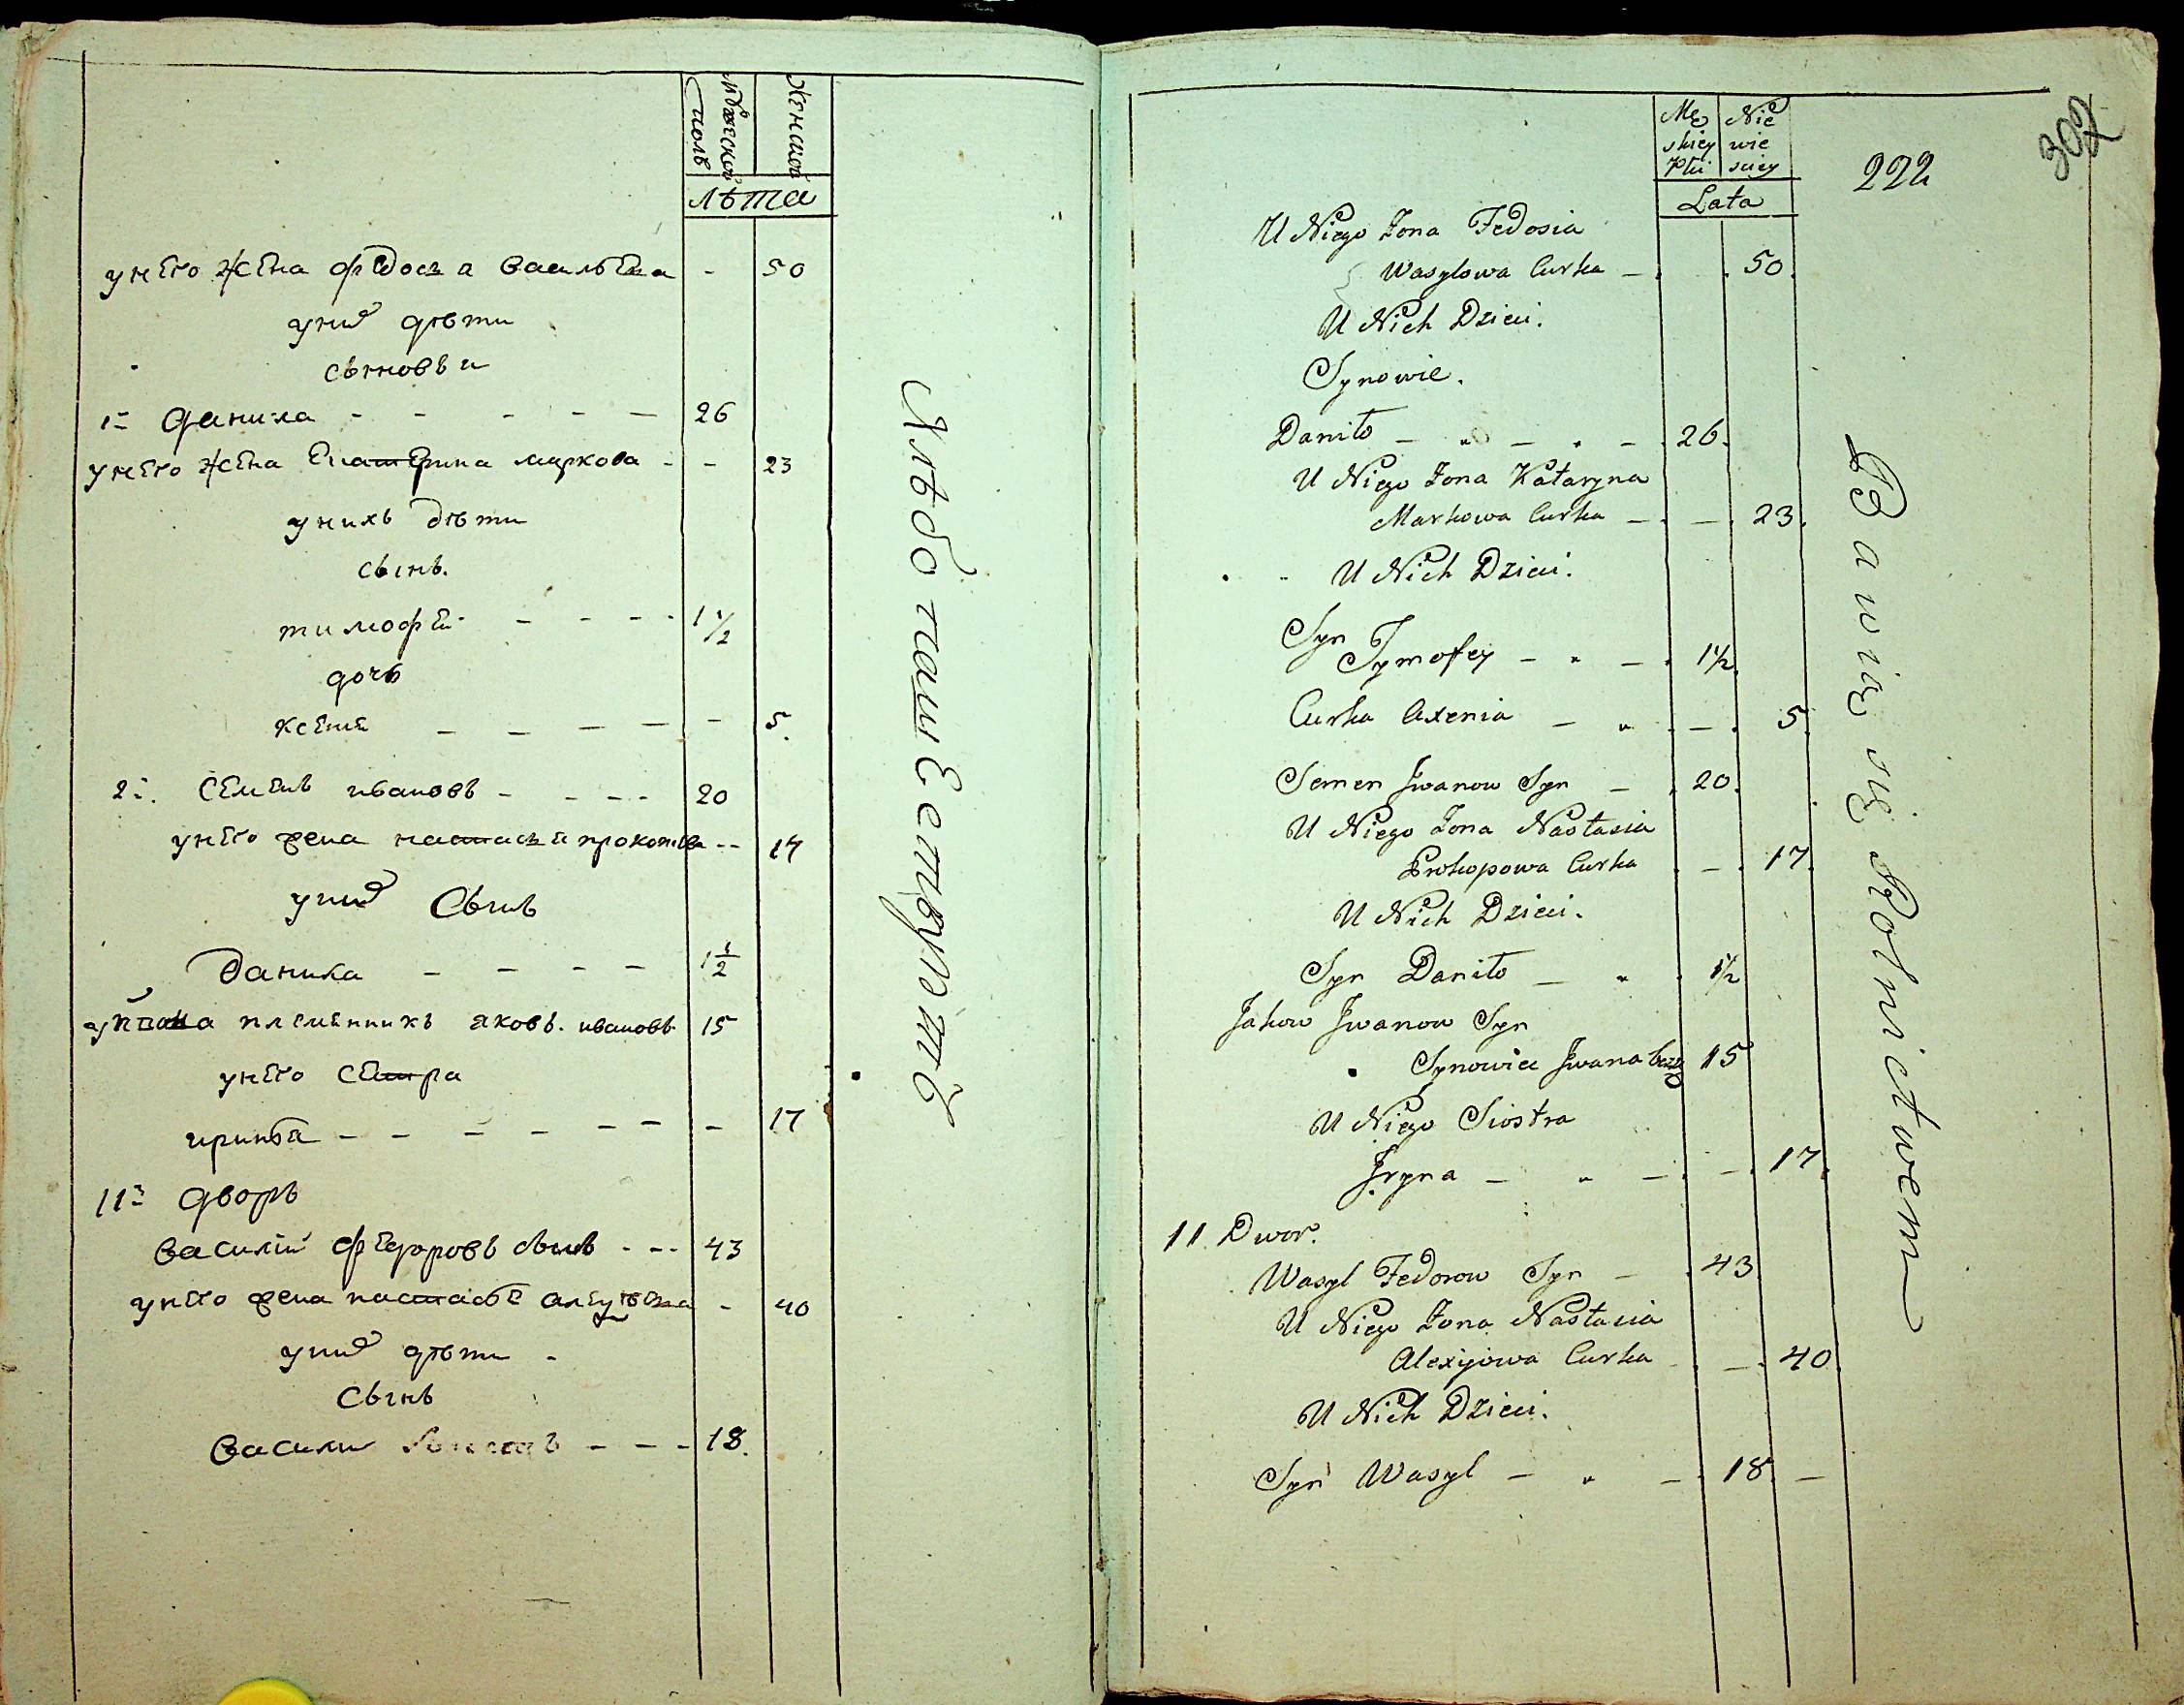 Мужской
полъ
Женской
лѣта
у него жена федосья васильева - 50
у них дѣти
сыновьи
1й данила - - - - - 26
у него жена Екатерина маркова - - 23
у нихъ дѣти
сынъ.
тимофей - - - - 1 1/2
дочь
ксения - - - - - 5.
2й. Семенъ ивановъ - - - - 20
у него жена настасья прокопьева - - 17
у них Сынъ
данила - - - - 1 1/2
у ивана племянникъ яковъ. ивановъ 15
у него сестра
ирина - - - - - - - 17
11й дворъ
василий федоровъ сынъ - - - 43
у него жена настасья - 40
у них дѣти -
Сынъ
васили - - - 18.
Хлѣбопашествуетъ
Mę
skiey
Płci
Nie
wie
sciey
Lata
222
302
U Niego Żona Fedosia
Wasylowa Curka - 50.
U Nich Dzieci.
Synowie.
Daniło - " - " - 26.
U Niego Żona Kataryna
Markowa Curka - - 23.
U Nich Dzieci.
Syn
Tymofey - " - 1 1/2
Curka Axenia - " - 5.
Semen Jwanow Syn - 20.
U Niego Żona Nastasia
Prokopowa Curka - 17.
U Nich Dzieci.
Syn Daniło - " 1/2
Jakow Jwanow Syn
Synowiec Jwana 15
U Niego Siostra
Jryna - " - - 17.
11. Dwor.
Wasyl Fedorow Syn - 43
U Niego Żona Nastasia
Alexijowa Curka - 40.
U Nich Dzieci.
Syn Wasyl - " - 18. -
Bawią się Rolnictwem